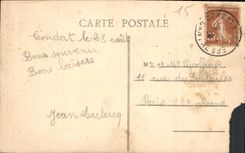 15
CARTE POSTALE
Condat le 28 août
Bons souvenirs
Bons baisers
Jean Leclercq
Mr et Me
11 rue des
Paris 18e arrond